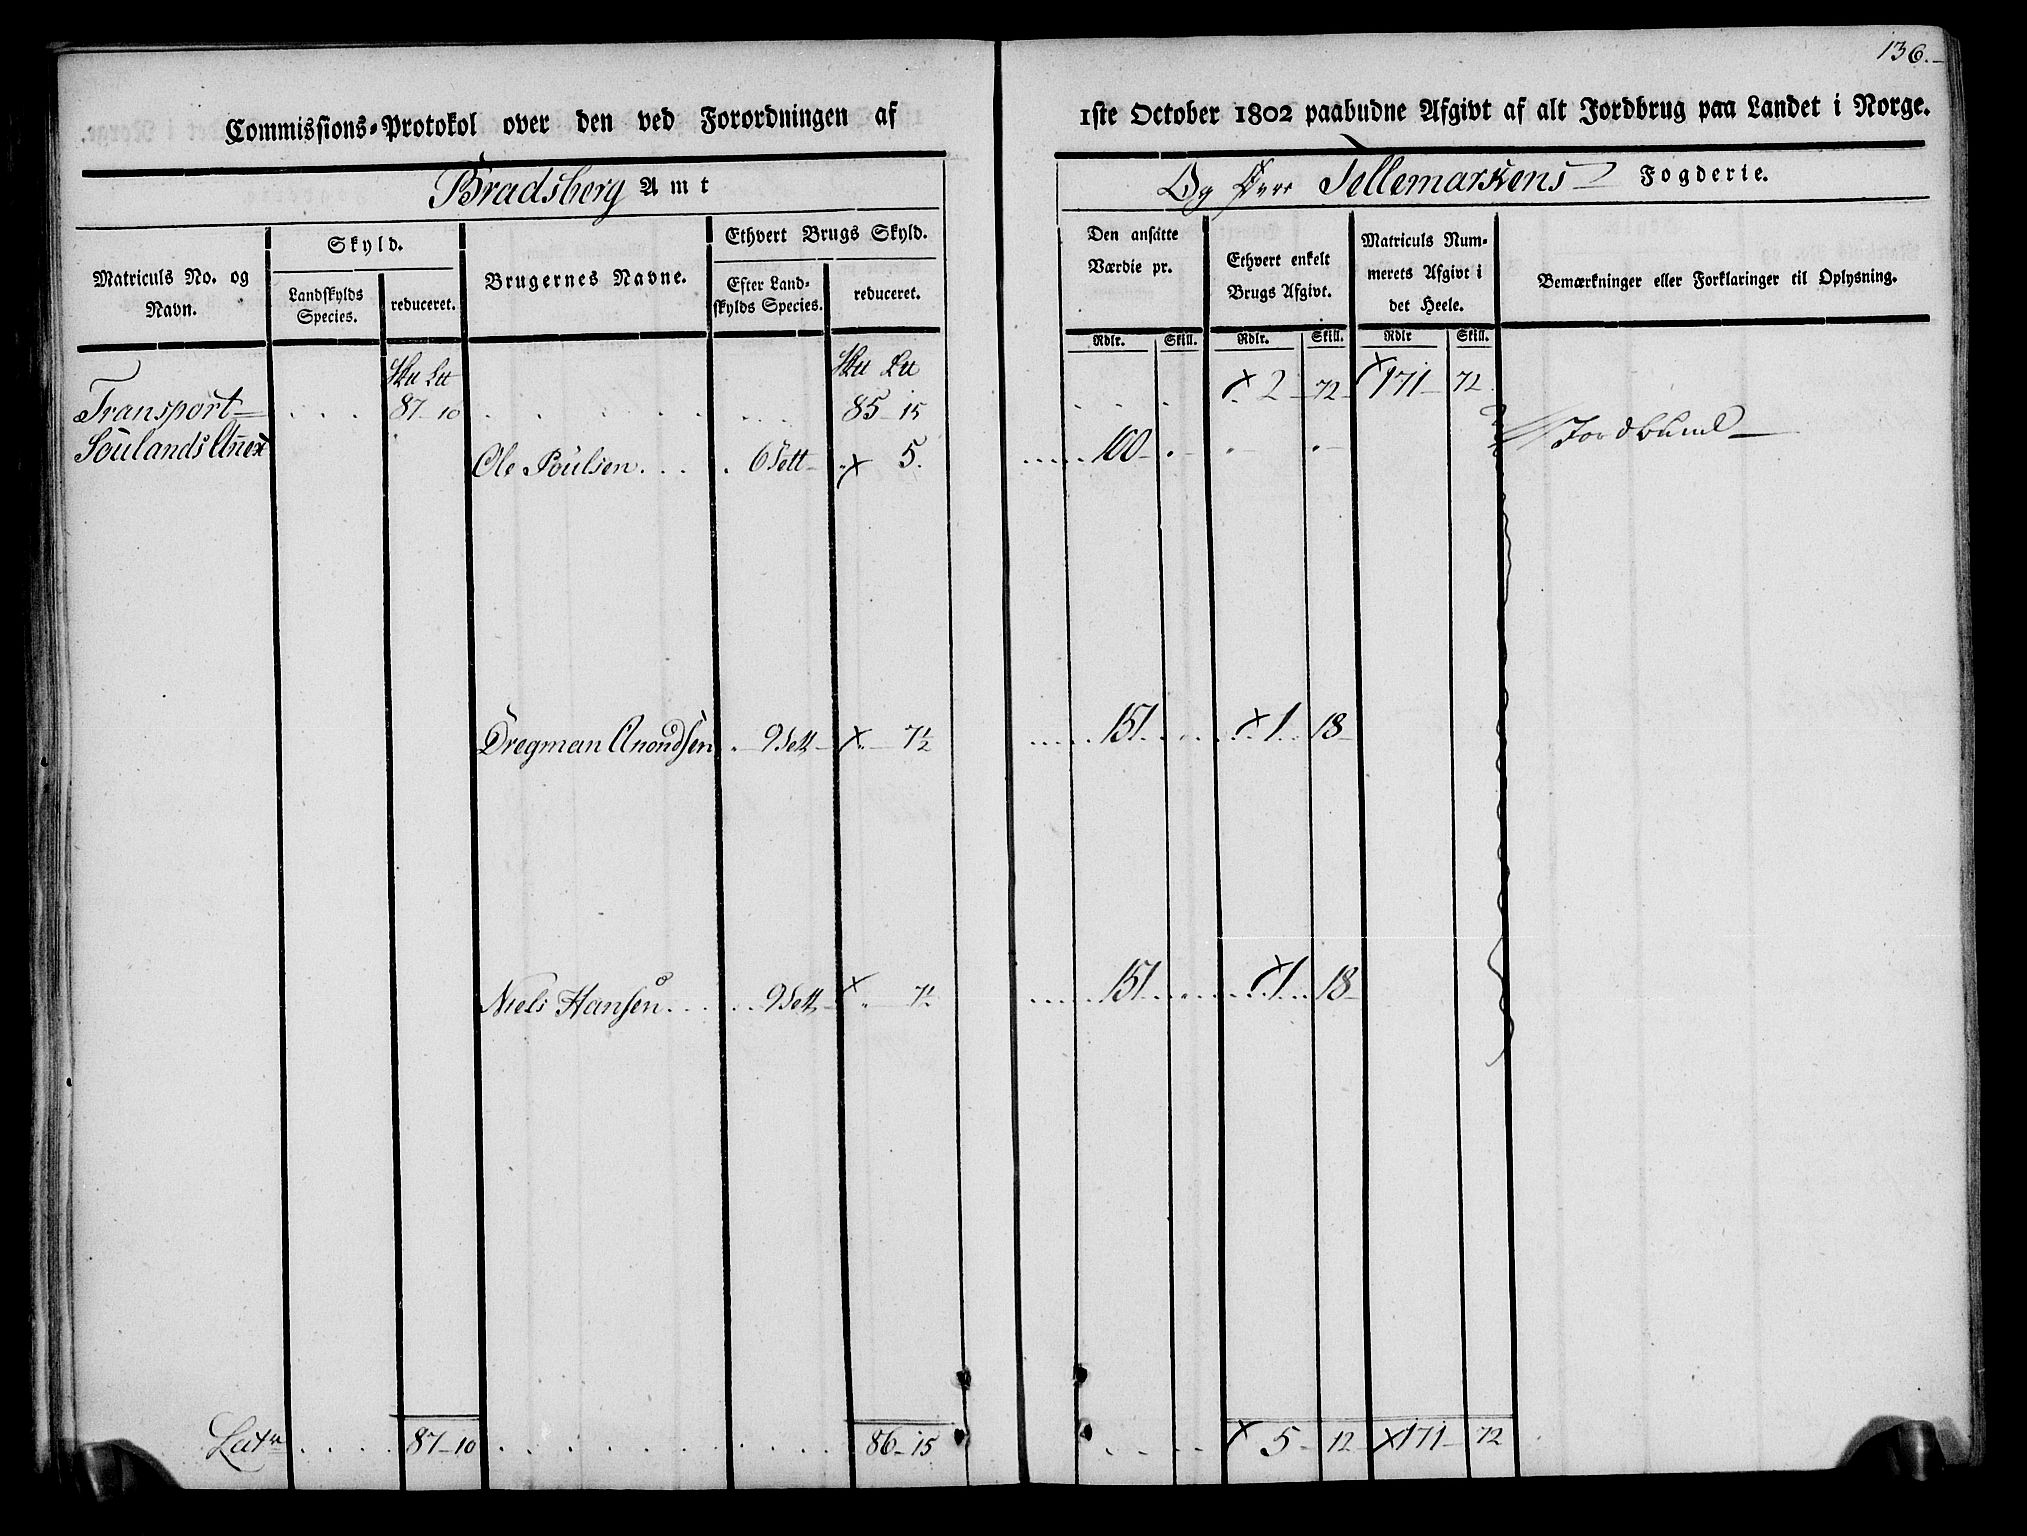 136.
Commissions-Protokol over den ved Forordningen af 1ste October 1802 paabudne Afgivt af alt Jordbrug paa Landet i Norge.
Bradsberg Amt
Og Øvre Tellemarkens Fogderie.
Matriculs No. og Navn.
Skyld.
Landskylds Species.
reduceret.
Brugernes Navne.
Ethvert Brugs Skyld.
Efter Landskylds Species.
reduceret.
Den ansatte Værdie pr.
Ethvert enkelt Brugs Afgivt.
Matriculs Nummerets Afgivt i det Heele.
Bemærkninger eller Forklaringer til Oplysning.
Rdlr. Skill. Rdlr. Skill. Rdlr Skill.
Transport 87 10 85 15 2 72 171 72
Soulands Añex
Ole Poulsen 6 Sett 5. 100
Dregman Anondsen 9 Sett 7½ 151 1 18
Niels Hansen 9 Sett 7½ 151 1 18
87 10 86 15 5 12 171 72